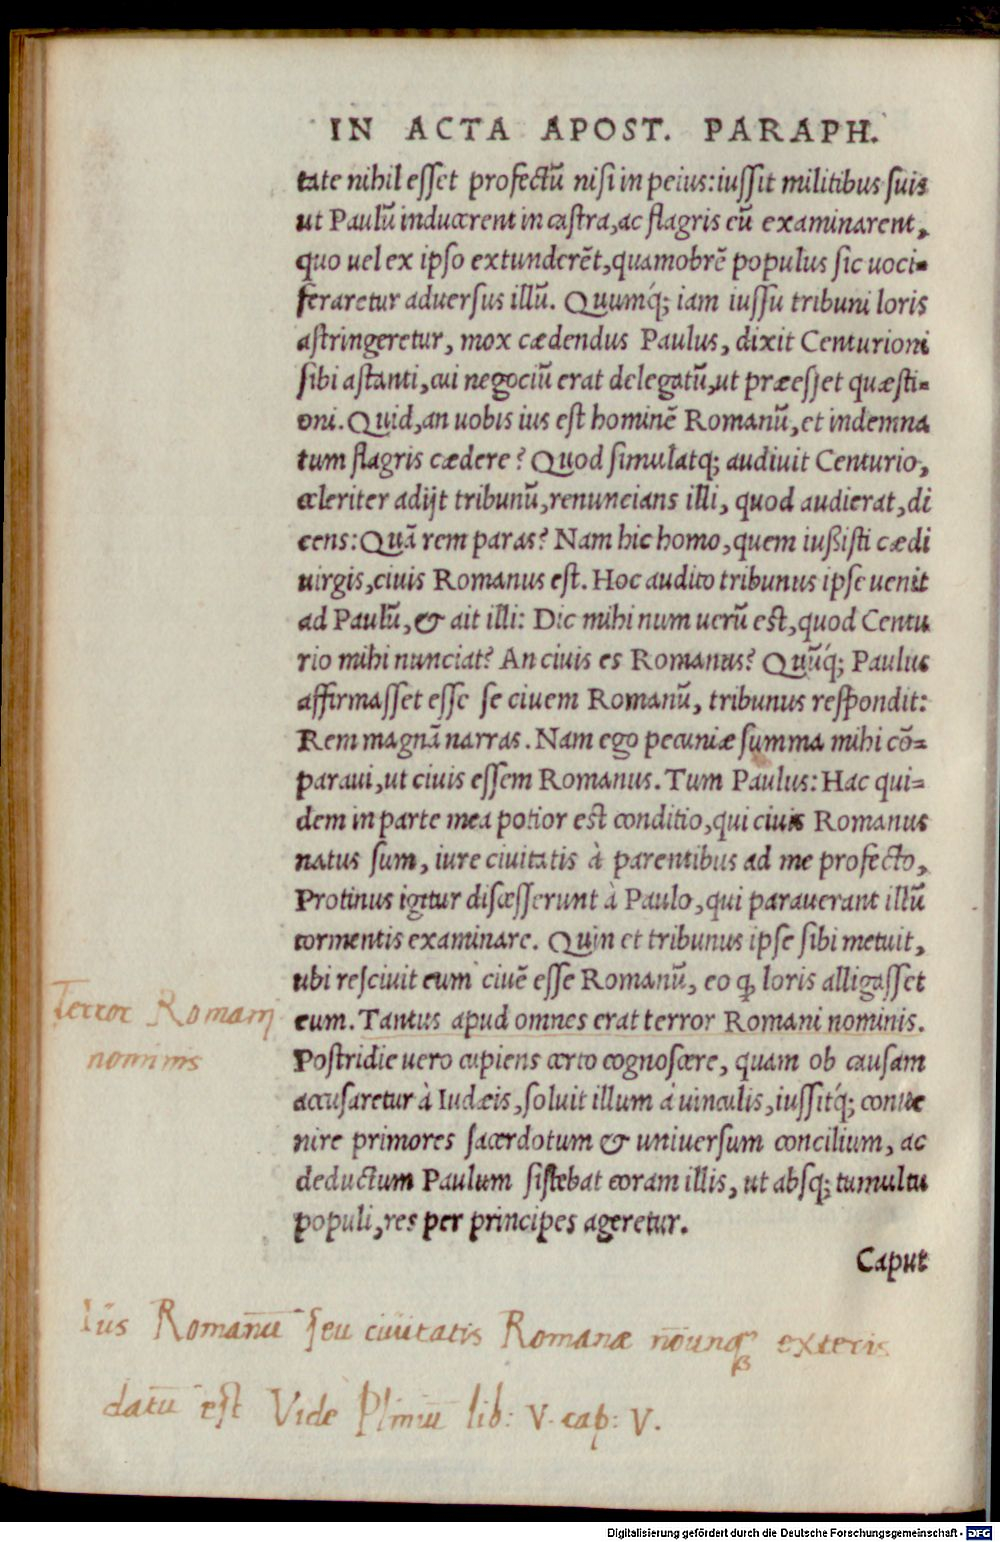 IN ACTA APOST. PARAPH.
tate nihil esset profectū nisi in peius: iussit militibus suis
ut Paulū inducerent in castra, ac flagris eū examinarent,
quo uel ex ipso extunderēt, quamobrē populus sic uoci-
feraretur aduersus illū. Quumq́; iam iussu tribuni loris
astringeretur, mox cædendus Paulus, dixit Centurioni
sibi astanti, cui negociū erat delegatū, ut præesset quæsti-
oni. Quid, an uobis ius est hominē Romanū, et indemna
tum flagris cædere? Quod simulatq; audiuit Centurio,
celeriter adijt tribunū, renuncians illi, quod audierat, di
cens: Quā rem paras? Nam hic homo, quem iußisti cædi
uirgis, ciuis Romanus est. Hoc audito tribunus ipse uenit
ad Paulū, & ait illi: Dic mihi num uerū est, quod Centu
rio mihi nunciat? An ciuis es Romanus? Quūq́; Paulus
affirmasset esse se ciuem Romanū, tribunus respondit:
Rem magnā narras. Nam ego pecuniæ summa mihi cō-
paraui, ut ciuis essem Romanus. Tum Paulus: Hac qui-
dem in parte mea potior est conditio, qui ciuis Romanus
natus sum, iure ciuitatis à parentibus ad me profecto,
Protinus igitur discesserunt à Paulo, qui parauerant illū
tormentis examinare. Quin et tribunus ipse sibi metuit,
ubi resciuit eum ciuē esse Romanū, eo ꝙ loris alligasset
eum. Tantus apud omnes erat terror Romani nominis.
Terror Romani
nominis
Postridie uero cupiens certo cognoscere, quam ob causam
accusaretur à Iudæis, soluit illum à uinculis, iussitq́; conue
nire primores sacerdotum & uniuersum concilium, ac
deductum Paulum sistebat coram illis, ut absq; tumultu
populi, res per principes ageretur.
Caput
Iüs Romanū seu ciuitatis Romanæ nōunqꝫ exteris
datū est Vide Pliniū lib: V. cap: V.
Digitalisierung gefördert durch die Deutsche Forschungsgemeinschaft - DFG